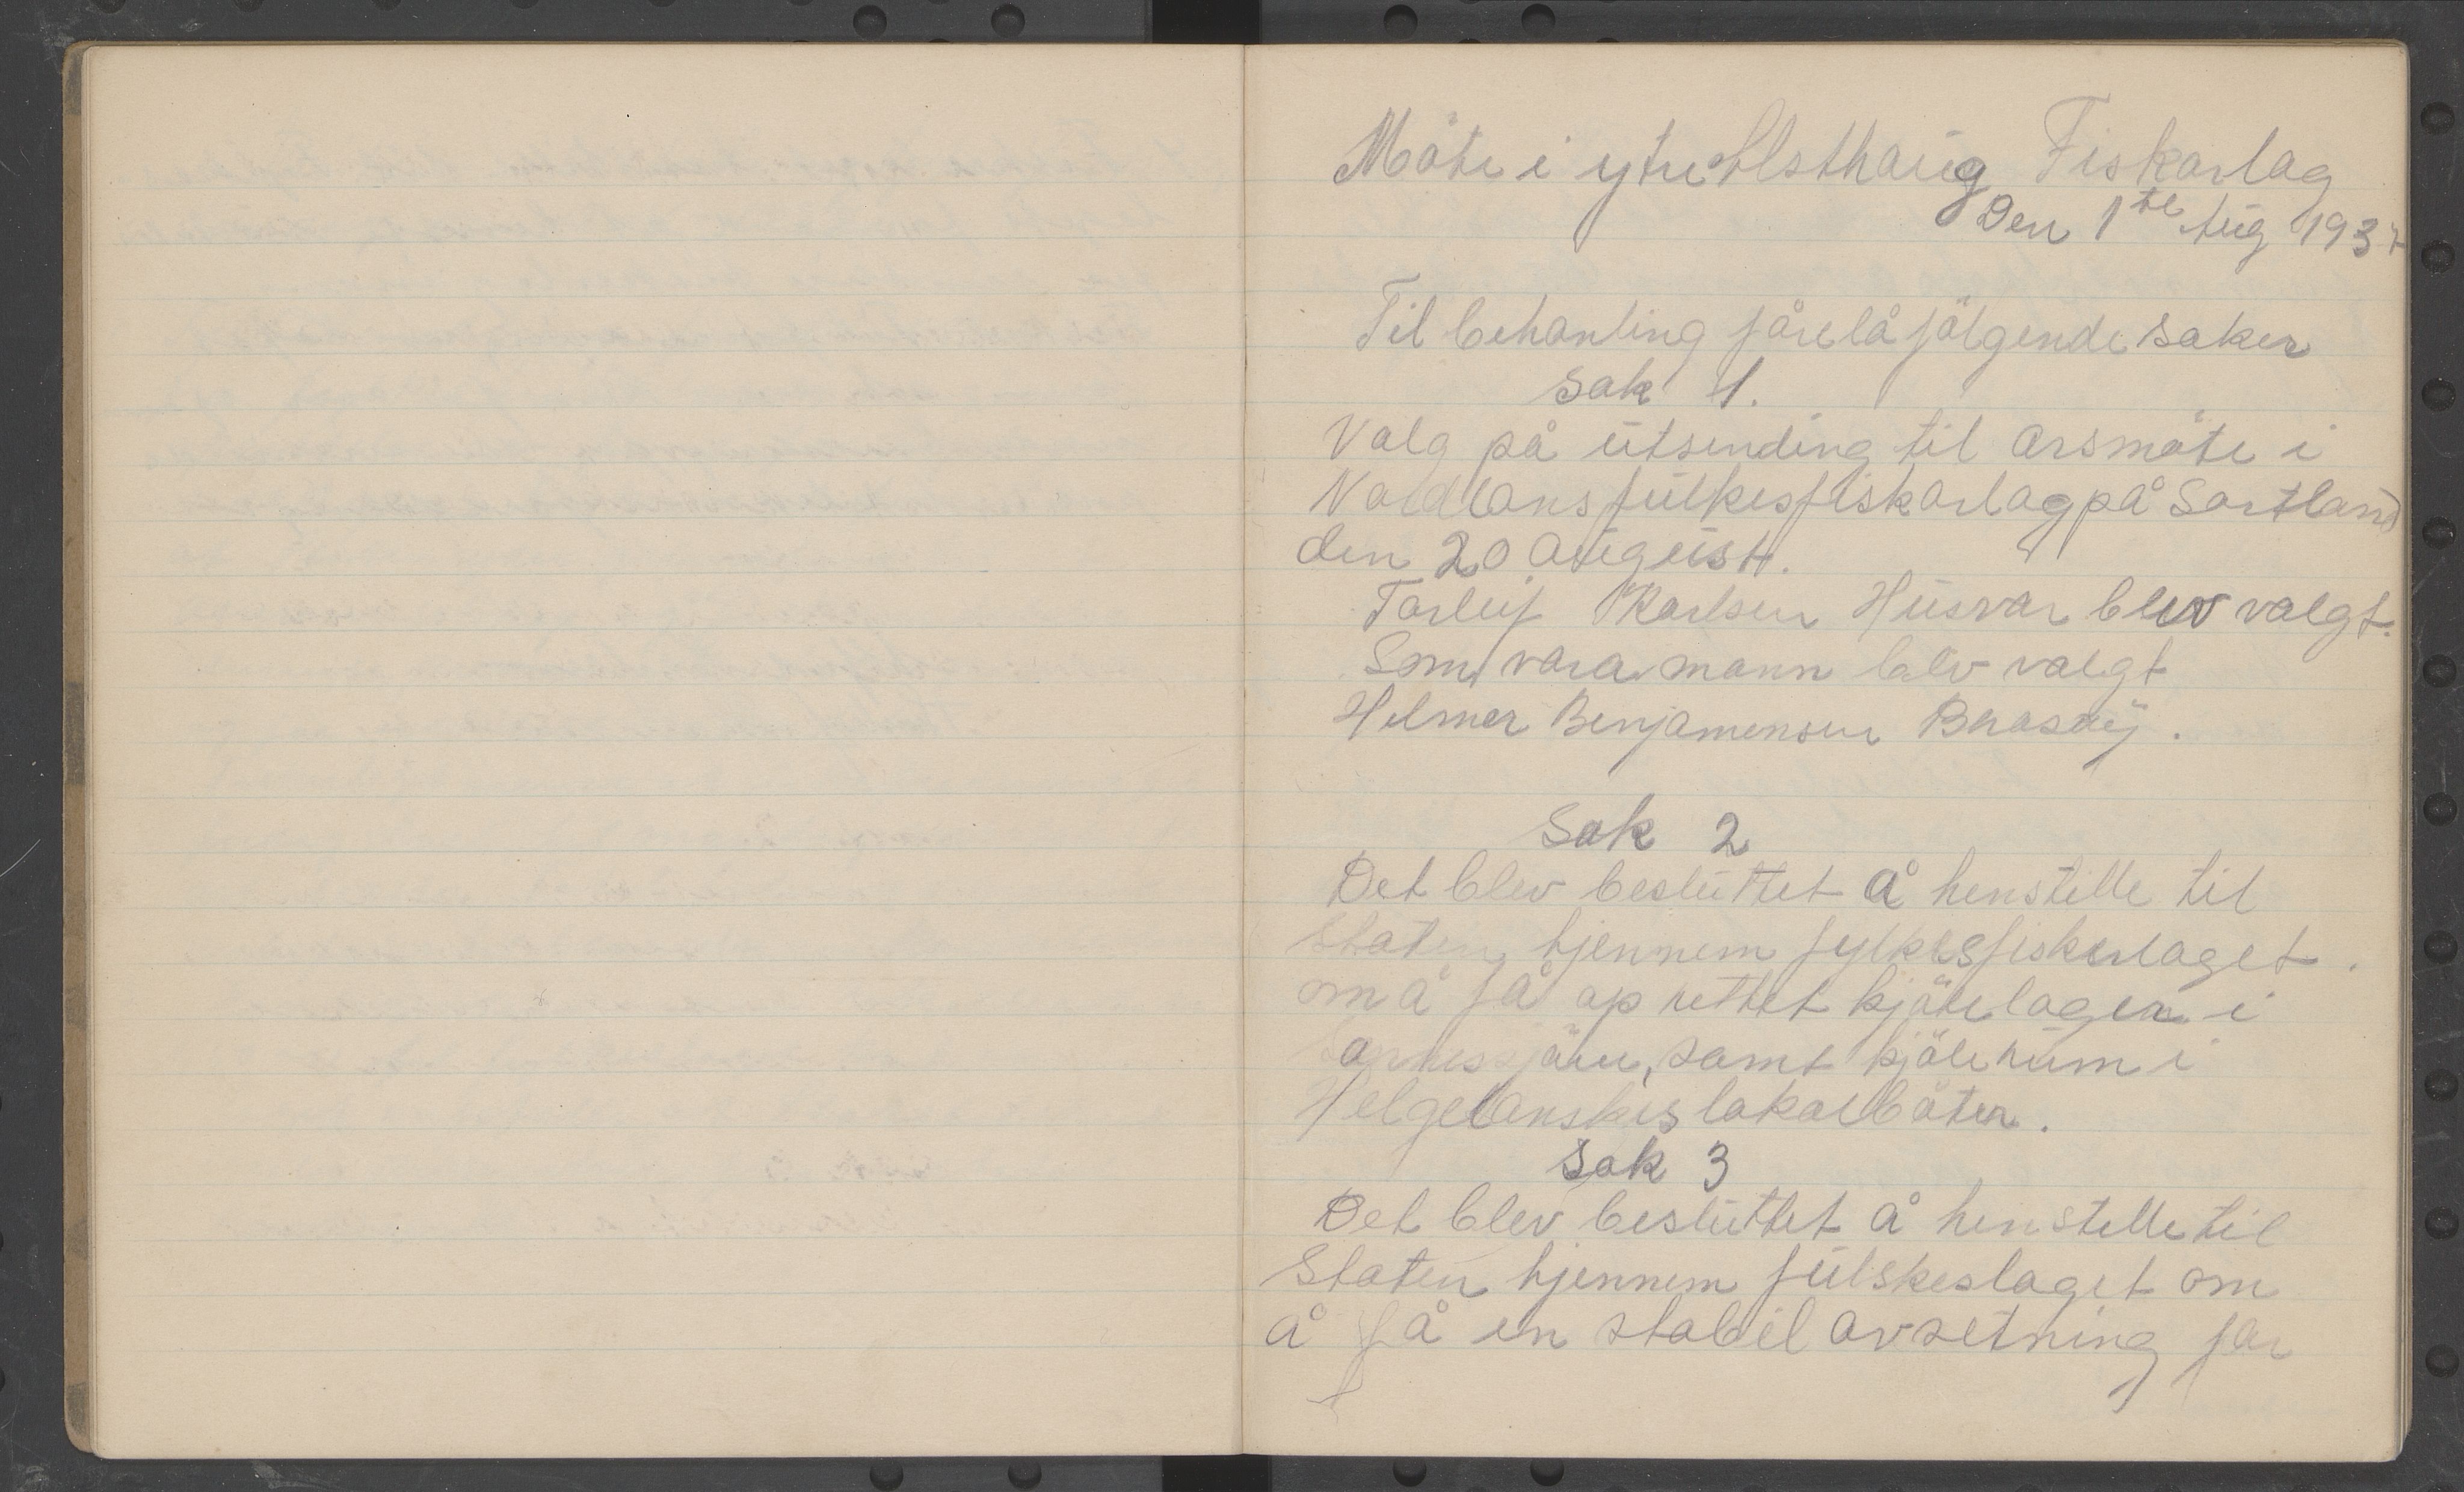 Möte i ytre Alsthaug Fiskarlag
Den 1te Aug 1937
Til behanling förelå fölgende saker
Sak 1.
Valg på utsending til Årsmöte i
Nordlans fülkesfiskarlag på Sortland
den 20 August.
Torleif Karlsen Husvær blev valgt.
Som vara mann blev valgt
Helmer Benjamensen Brasöy.
Sak 2
Det blev besluttet å henstille til
Staten hjennem fylkesfiskerlaget.
om å få op rettet kjöle lager i
samt kjölerum i
Helgelanskes lokalbåter.
Sak 3
Det blev besluttet å henstelle til
Staten hjennem fülskeslaget om
å få en stabil avsetning for